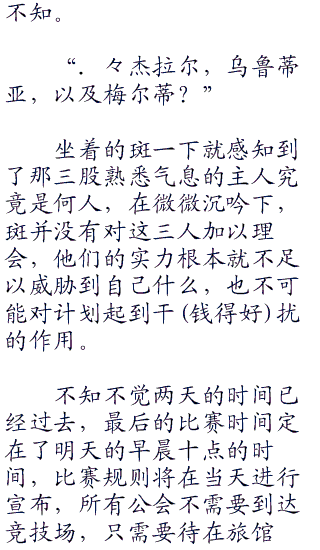 不知。
“．々杰拉尔，乌鲁蒂
亚，以及梅尔蒂？”
坐着的斑一下就感知到
了那三股熟悉气息的主人究
竟是何人，在微微沉吟下，
斑并没有对这三人加以理
会，他们的实力根本就不足
以威胁到自己什么，也不可
能对计划起到干(钱得好)扰
的作用。
不知不觉两天的时间已
经过去，最后的比赛时间定
在了明天的早晨十点的时
间，比赛规则将在当天进行
宣布，所有公会不需要到达
竞技场，只需要待在旅馆